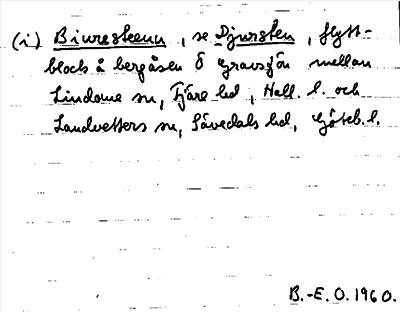 (i) Biuresteenn, se Djursten, flytt-
block å bergåsen ö Gravsjön mellan
Lindome sn, Fjäre hd, Hall. l. och
Landvetters sn, Sävedals hd, Göteb. l.
B.-E. O. 1960.